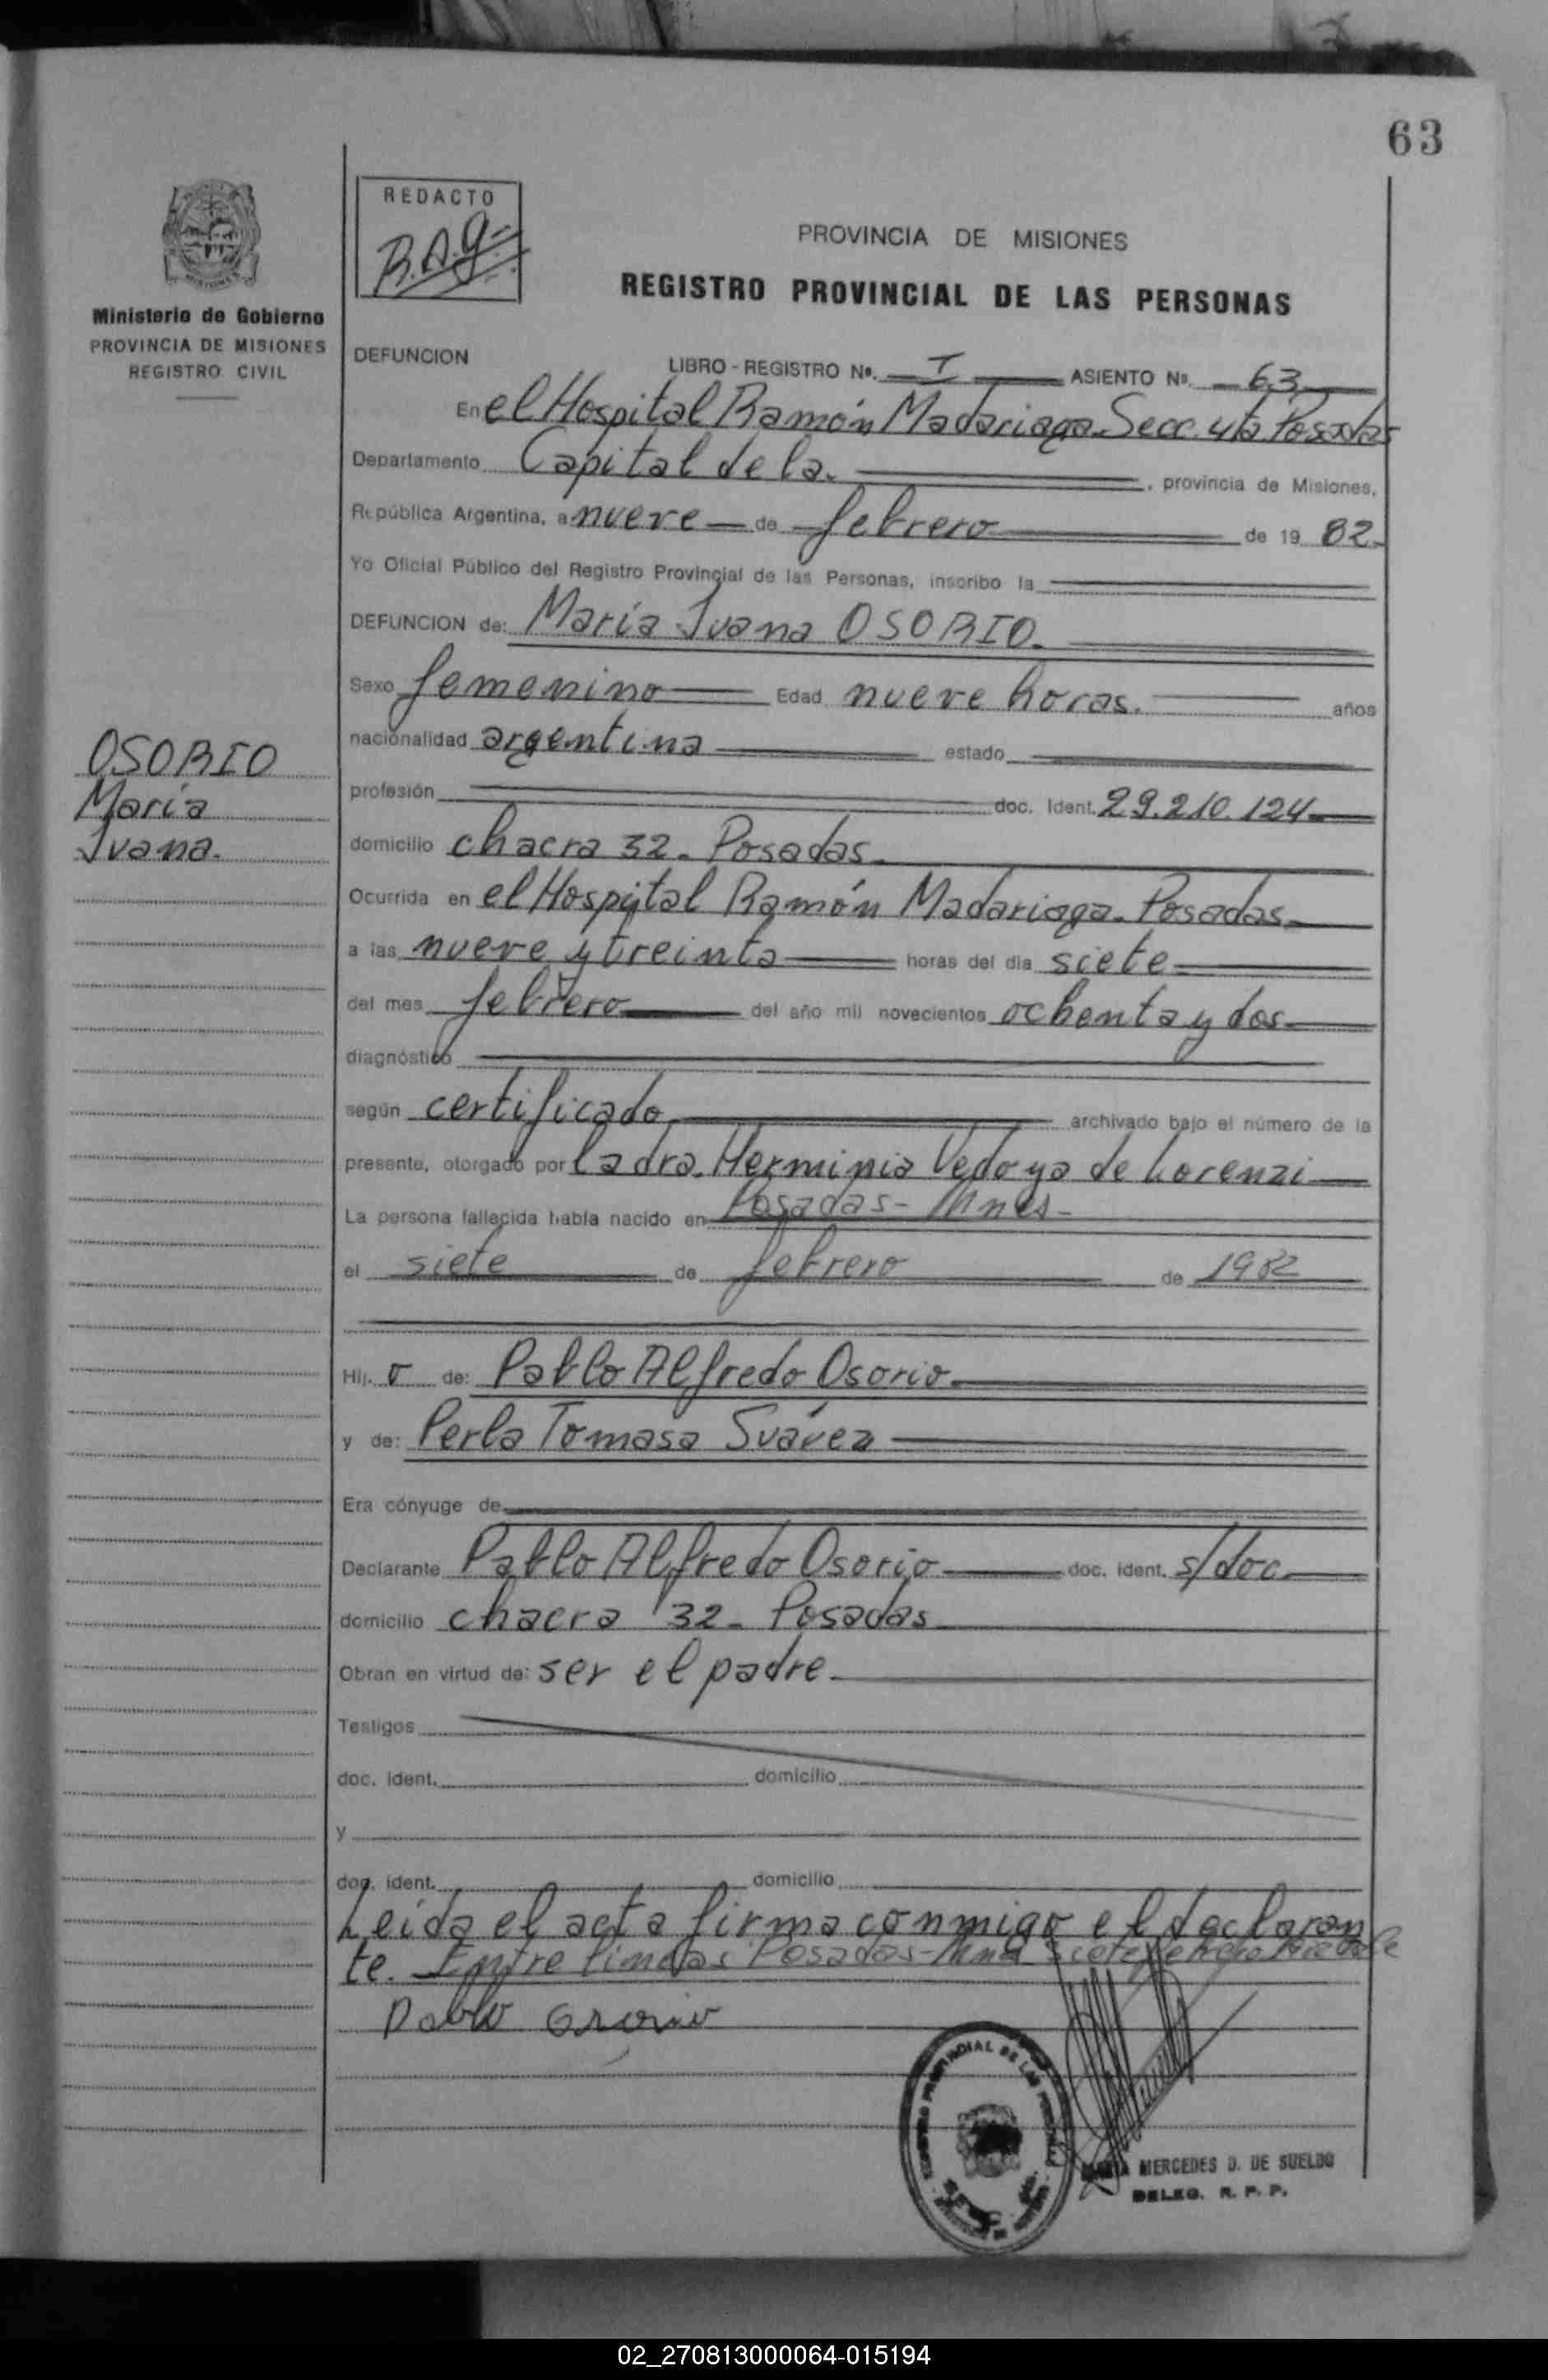 63
REDACTO
B.A.g.
PROVINCIA DE MISIONES
REGISTRO PROVINCIAL DE LAS PERSONAS
Ministerio de Gobierno
PROVINCIA DE MISIONES
REGISTRO CIVIL
DEFUNCION LIBRO - REGISTRO Nº. I ASIENTO Nº. 63
En el Hospital Ramón Madariaga. Secc. 4ta Posadas
Departamento Capital de la. , provincia de Misiones,
República Argentina, a nueve de febrero de 19 82.
Yo Oficial Público del Registro Provincial de las Personas, inscribo la
DEFUNCION de: María Juana OSORIO.
Sexo femenino Edad nueve horas. años
nacionalidad argentina estado
profesión doc. Ident. 29.210.124
OSORIO
María
Juana.
domicilio chacra 32. Posadas.
Ocurrida en el Hospital Ramón Madariaga. Posadas
a las nueve y treinta horas del día siete
del mes febrero del año mil novecientos ochenta y dos
diagnóstico
según certificado archivado bajo el número de la
presente, otorgado por la dra. Herminia Vedoya de Lorenzi
La persona fallecida había nacido en Posadas - Mnes -
el siete de febrero de 1982
Hij. o de: Pablo Alfredo Osorio
y de: Perla Tomasa Suárez
Era cónyuge de
Declarante Pablo Alfredo Osorio doc. ident. s/doc.
domicilio chacra 32. Posadas
Obran en virtud de: ser el padre.
Testigos
doc. ident. domicilio
y
doc. ident. domicilio
Leída el acta firma conmigo el declaran
te. Entre lineas Posadas - Mnes Siete febrero
Pablo Osorio
REGISTRO PROVINCIAL DE LAS PERSONAS
MARIA MERCEDES D. DE SUELDO
DELEG. R. P. P.
02_270813000064-015194